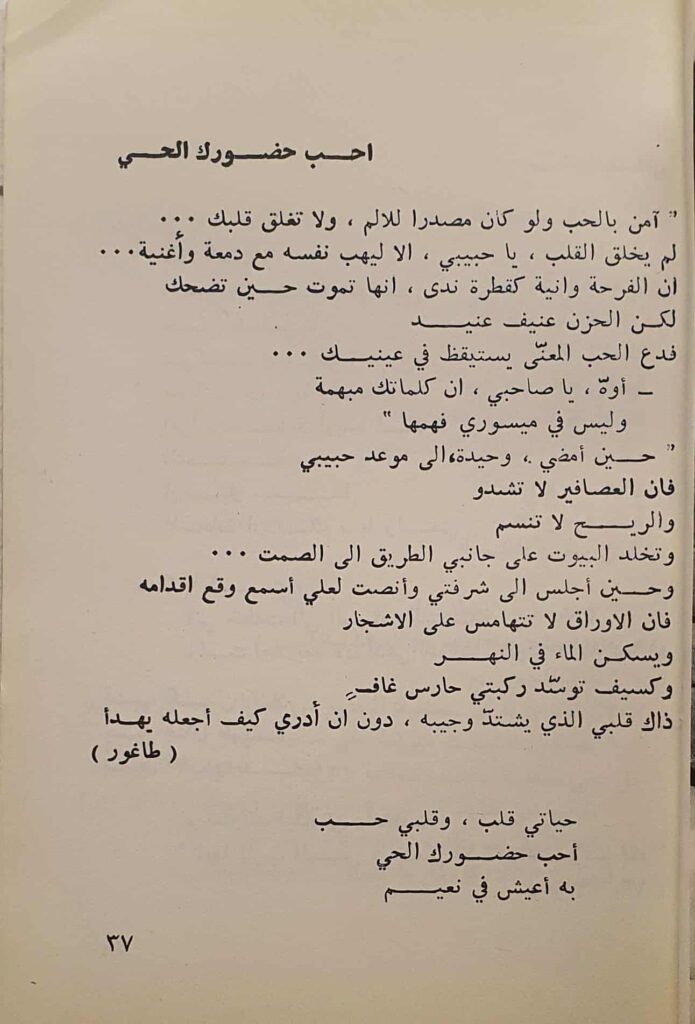 احب حضورك الحي
" آمن بالحب ولو كان مصدرا للالم ، ولا تغلق قلبك ...
لم يخلق القلب ، يا حبيبي ، الا ليهب نفسه مع دمعة وأغنية...
ان الفرحة وانية كقطرة ندى ، انها تموت حين تضحك
لكن الحزن عنيف عنيد
فدع الحب المعنّى يستيقظ في عينيك ...
ـ أوهّ ، يا صاحبي ، ان كلماتك مبهمة
وليس في ميسوري فهمها "
" حين أمضي ، وحيدة،الى موعد حبيبي
فان العصافير لا تشدو
والريح لا تنسم
وتخلد البيوت على جانبي الطريق الى الصمت ...
وحين أجلس الى شرفتي وأنصت لعلي أسمع وقع اقدامه
فان الاوراق لا تتهامس على الاشجار
ويسكن الماء في النهر
وكسيف توسّد ركبتي حارس غافٍ
ذاك قلبي الذي يشتدّ وجيبه ، دون ان أدري كيف أجعله يهدأ
( طاغور )
حياتي قلب ، وقلبي حب
أحب حضورك الحي
به أعيش في نعيم
٣٧